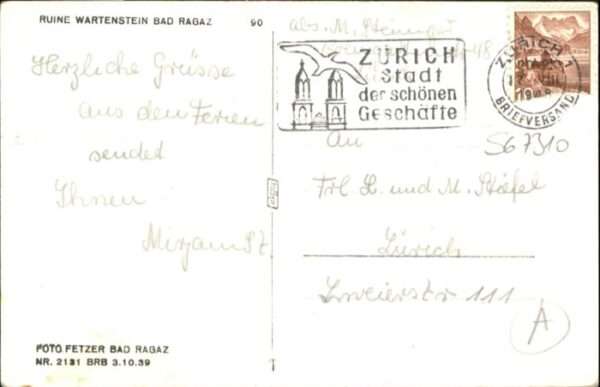 RUINE WARTENSTEIN BAD RAGAZ 90
Herzliche Grüsse
aus den Ferien
sendet
Ihnen
Mirjam St
FOTO FETZER BAD RAGAZ
NR. 2131 BRB 3.10.39
abs. M.
ZÜRICH
Stadt
der schönen
Geschäfte
ZÜRICH 1
BRIEFVERSAND
S67310
An
Frl. L. und M. Stäfel
Zürich
111
A